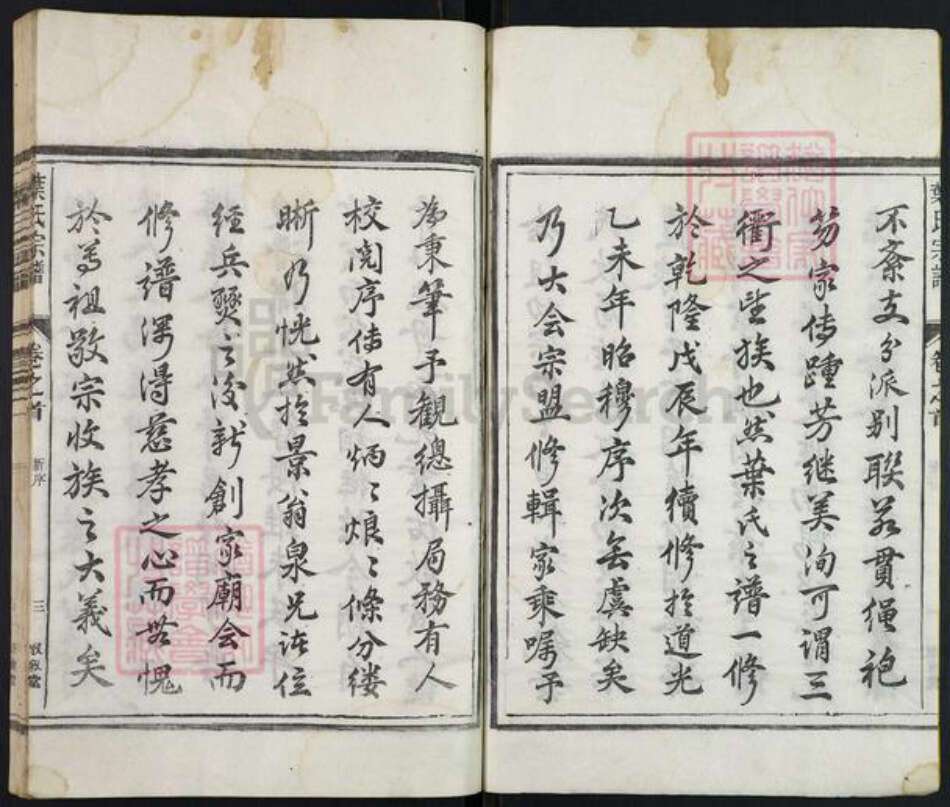 不紊支分派别聯若貫繩袍
笏家传踵芳继美洵可謂三
衢之望族也然葉氏之譜一修
於乾隆戊辰年續修於道光
乙未年昭穆序次無虞缺矣
乃大会宗盟修輯家乘嘱予
為秉筆予観總攝局務有人
校閲序传有人炳〻烺〻條分缕
晰乃恍然於景翁泉兄诸位
经兵燹之後新創家廟会而
修譜深得慈孝之心而無愧
於尊祖敬宗收族之大義矣
葉氏宗譜
卷之首
新序
三
FamilySearch